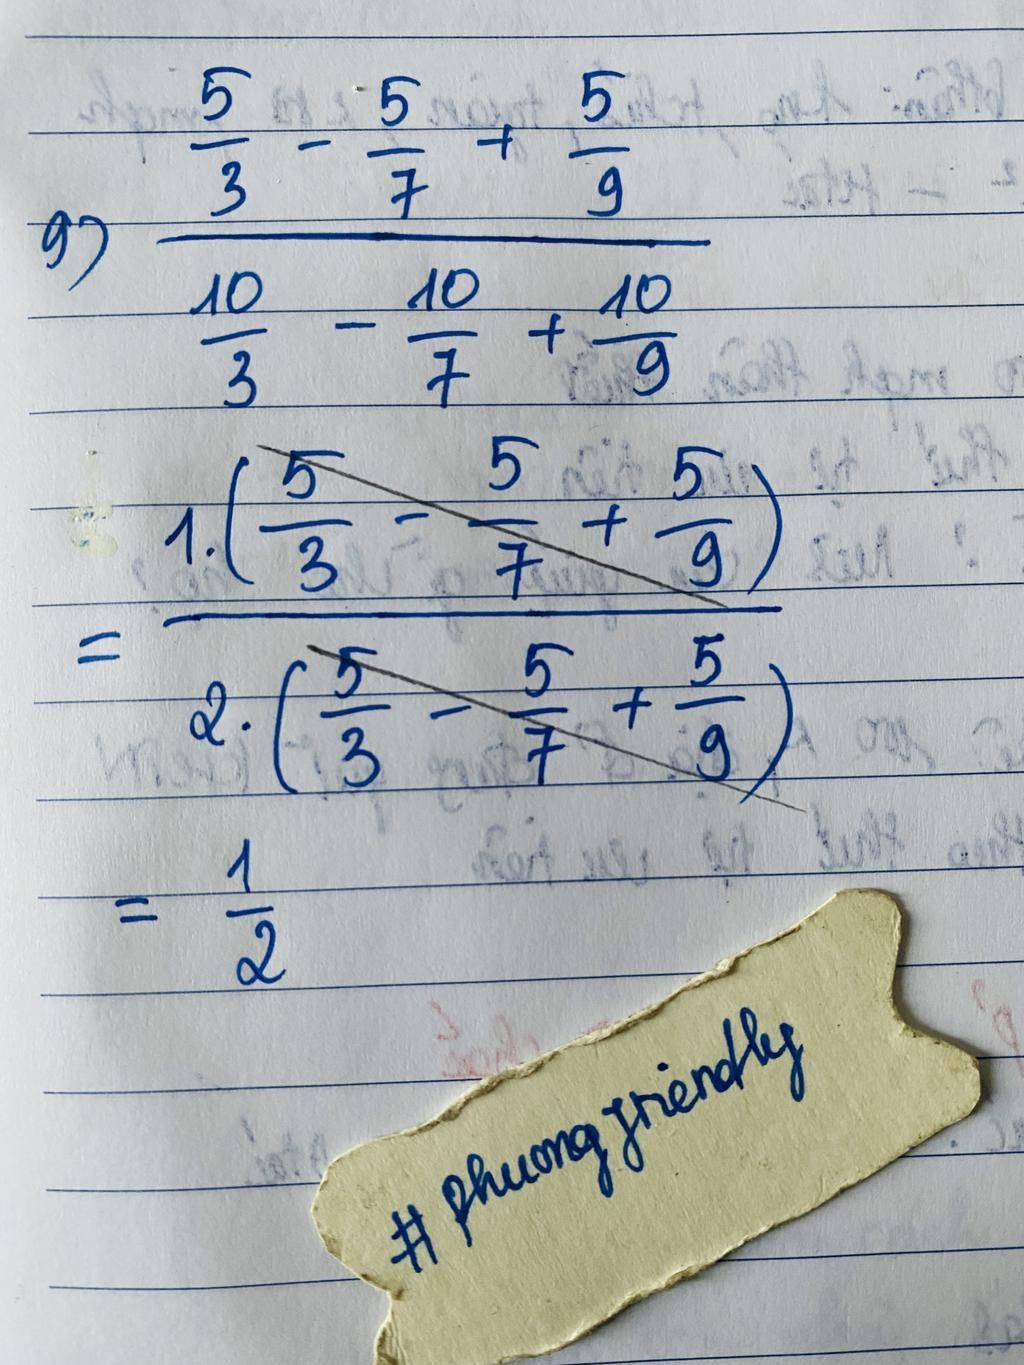 9) \frac{\frac{5}{3} - \frac{5}{7} + \frac{5}{9}}{\frac{10}{3} - \frac{10}{7} + \frac{10}{9}}
= \frac{1.(\frac{5}{3} - \frac{5}{7} + \frac{5}{9})}{2.(\frac{5}{3} - \frac{5}{7} + \frac{5}{9})}
= \frac{1}{2}
#phuongfriendly